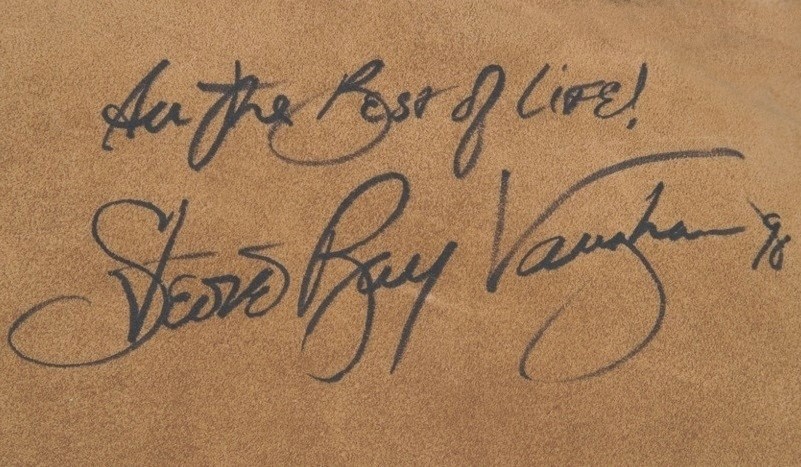 All The Best of Life!
Stevie Ray Vaughan